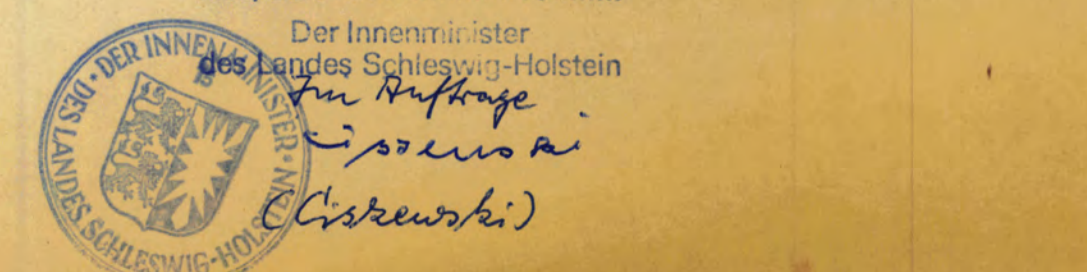 Der Innenminister
des Landes Schleswig-Holstein
Im Auftrage
(Ciszewski)
DER INNENMINISTER · DES LANDES SCHLESWIG-HOLSTEIN ·